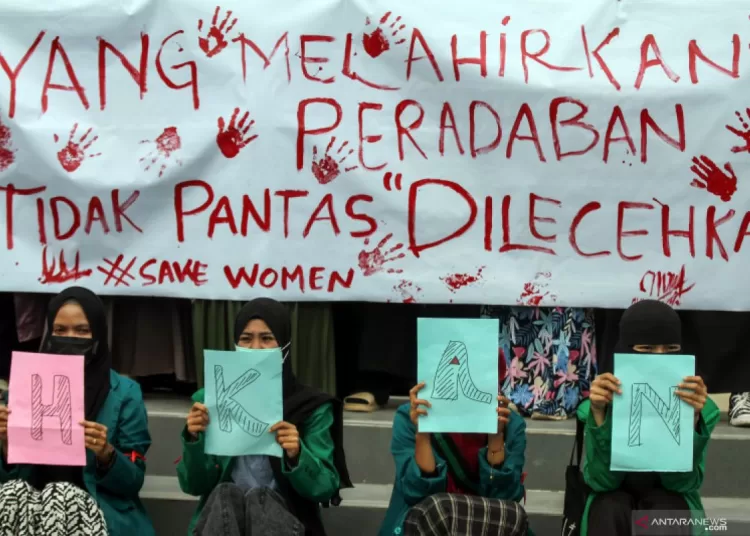 YANG MELAHIRKAN
PERADABAN
TIDAK PANTAS "DILECEHKA
#SAVE WOMEN
H K A N
ANTARANEWS
.com
ANTARANEWS
.com